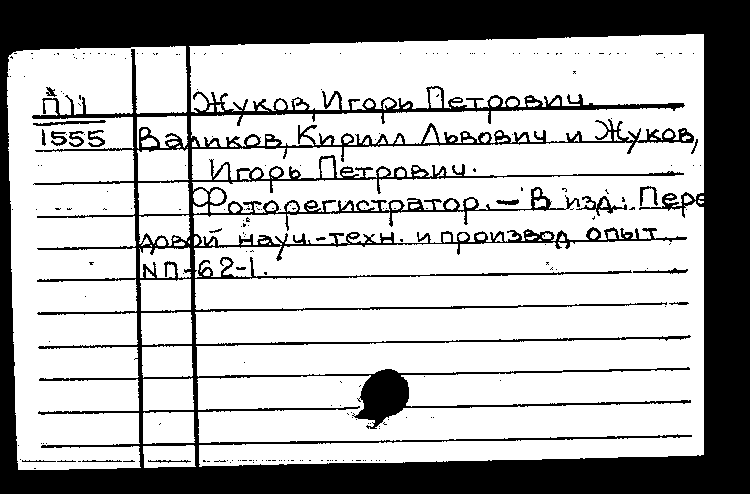 П11 Жуков, Игорь Петрович.
1555 Валиков, Кирилл Львович и Жуков,
Игорь Петрович.
Фоторегистратор. — В изд.: Пере
довой науч.-техн. и производ опыт
№П-62-1.